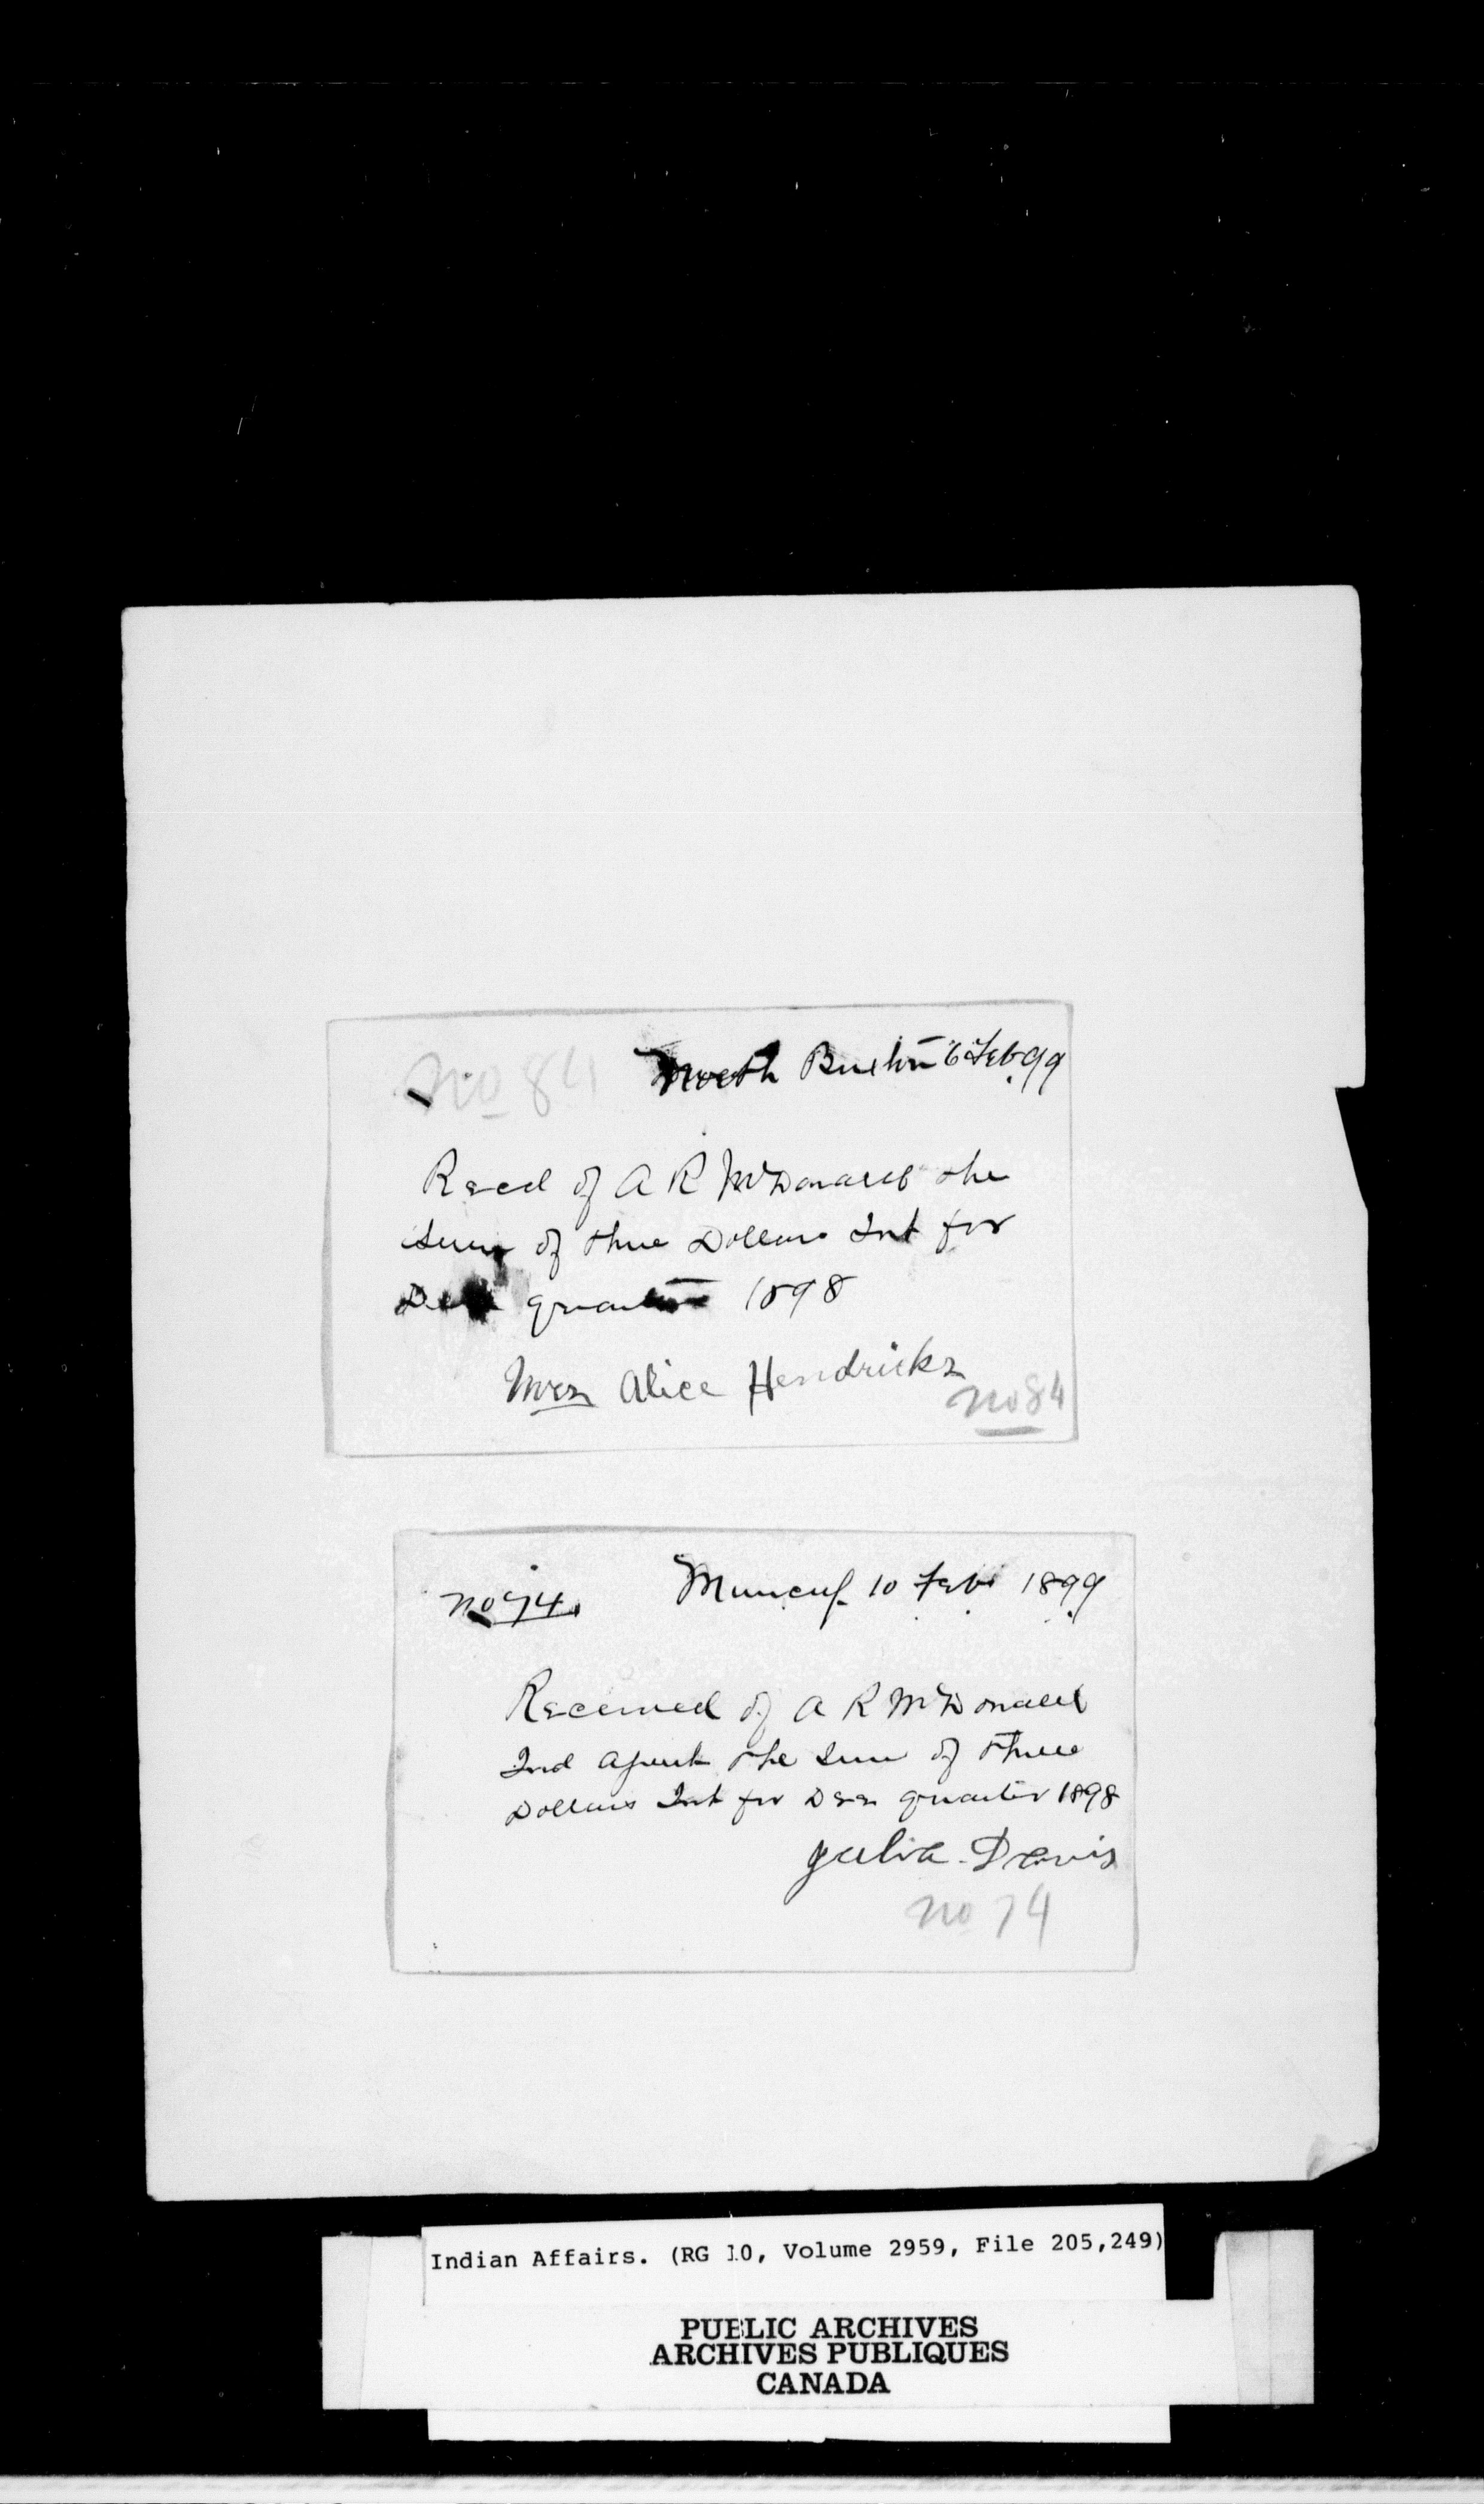 No 84
North Buxton 6 Feb 99
Recd of A R McDonald the
sum of three Dollars Int for
Dec quarter 1898
Mrs Alice Hendricks
No 84
No 74.
Muncey 10 Feb 1899
Received of A R McDonald
Ind Agent the sum of three
Dollars Int for Dec quarter 1898
Julia Davis
No 74
Indian Affairs. (RG 10, Volume 2959, File 205,249)
PUBLIC ARCHIVES
ARCHIVES PUBLIQUES
CANADA